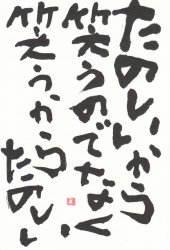 たのしいから
笑うのでなく
笑うから
たのしい